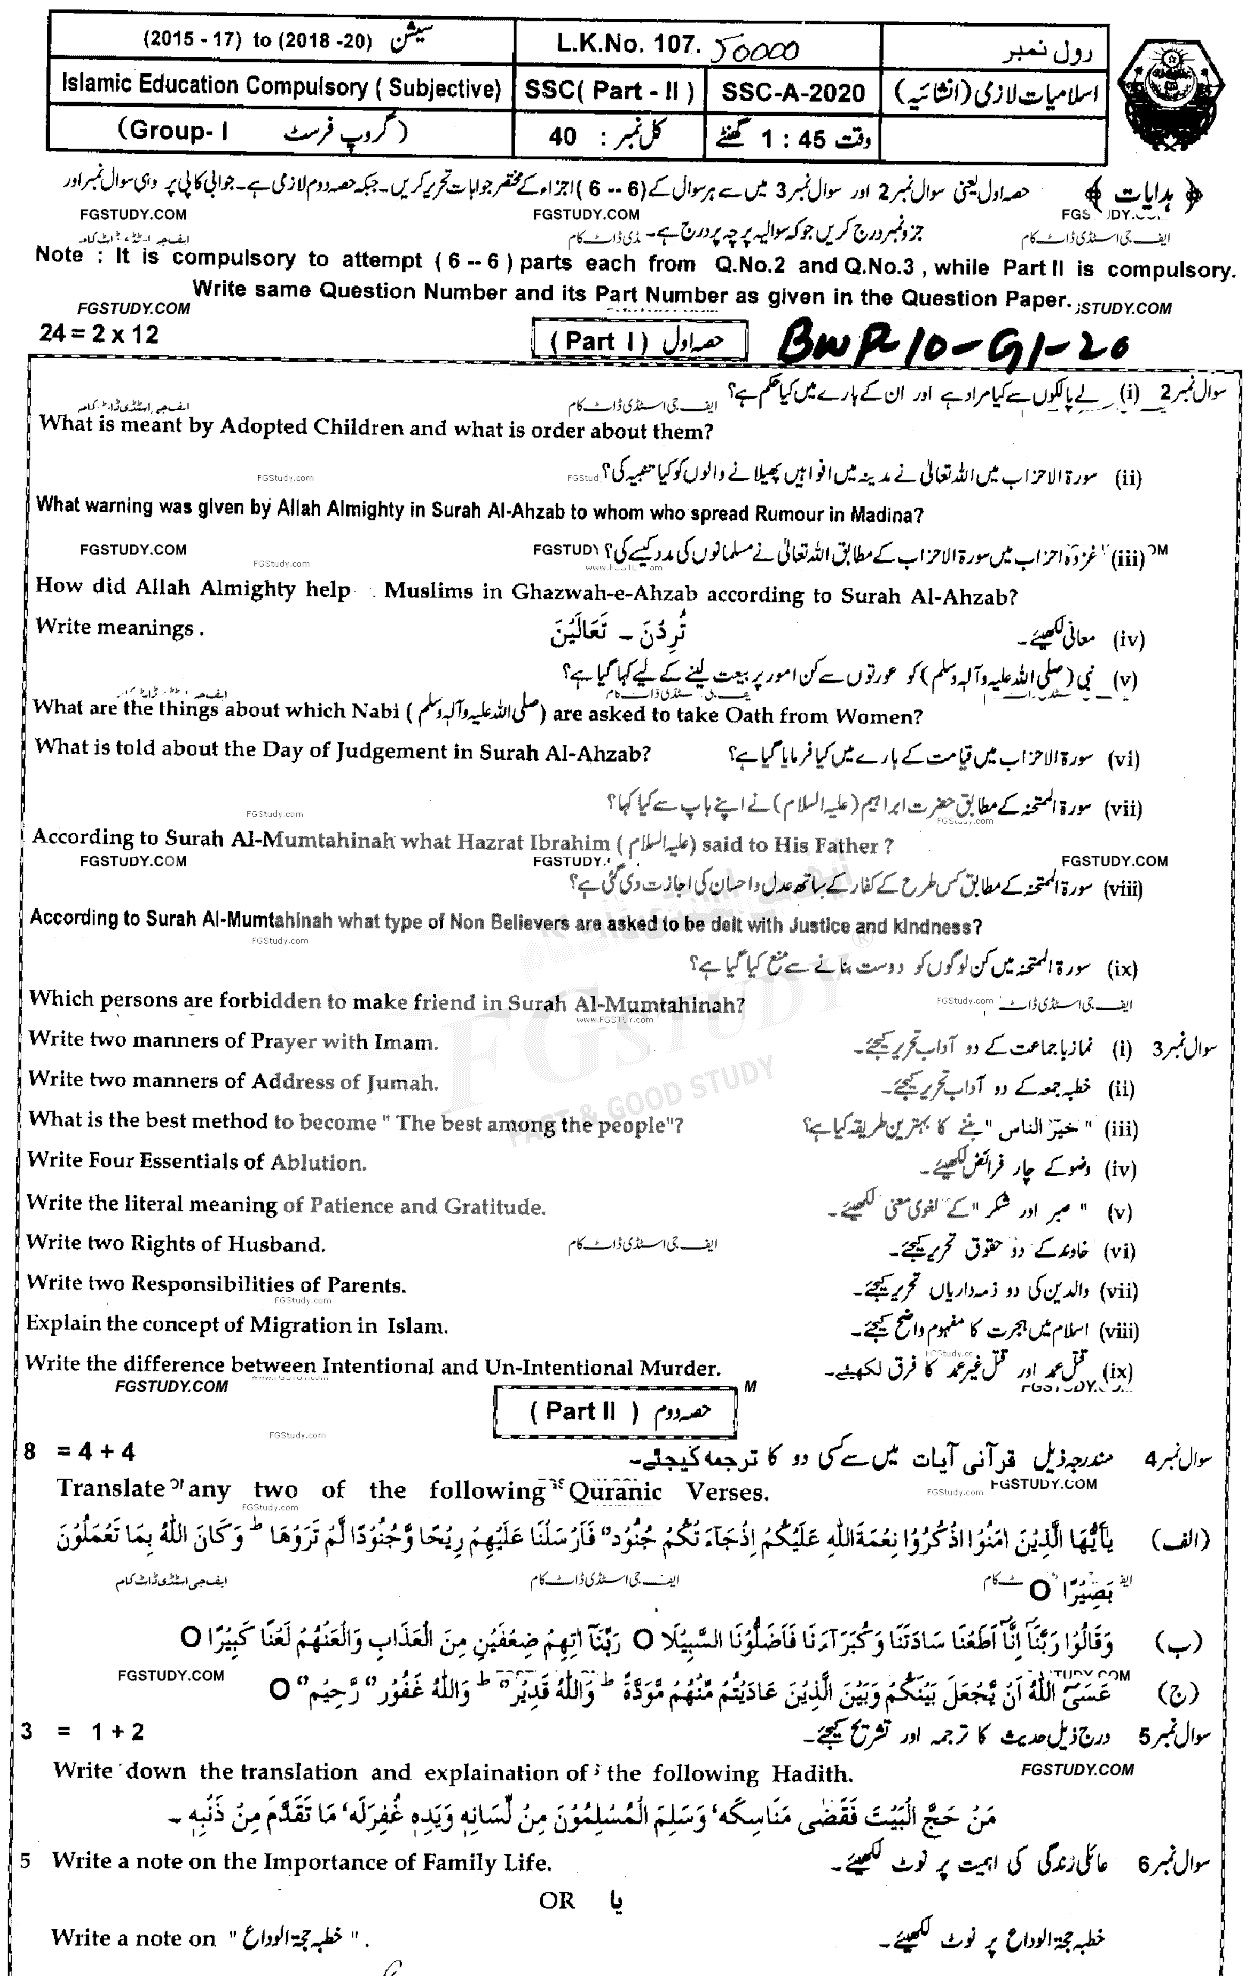 (2015 - 17) to (2018 -20) سیشن
L.K.No. 107. 50000
رول نمبر
Islamic Education Compulsory ( Subjective) SSC( Part - II ) SSC-A-2020 اسلامیات لازمی (انشائیہ)
(Group- I گروپ فرسٹ) کل نمبر : 40 وقت 1 : 45 گھنٹے
﴿ ہدایات ﴾ حصہ اول یعنی سوال نمبر 2 اور سوال نمبر 3 میں سے ہر سوال کے (6 -- 6) اجزاء کے مختصر جوابات تحریر کریں۔ جبکہ حصہ دوم لازمی ہے۔ جوابی کاپی پر وہی سوال نمبر اور
FGSTUDY.COM FGSTUDY.COM
جزو نمبر درج کریں جو کہ سوالیہ پرچہ پر درج ہے۔
Note : It is compulsory to attempt ( 6 -- 6 ) parts each from Q.No.2 and Q.No.3 , while Part II is compulsory.
Write same Question Number and its Part Number as given in the Question Paper.
FGSTUDY.COM
24 = 2 x 12 ( Part I ) حصہ اول BWP-10-G1-20
سوال نمبر 2 (i) لے پالکوں سے کیا مراد ہے اور ان کے بارے میں کیا حکم ہے؟
ایف جی اسٹڈی ڈاٹ کام
What is meant by Adopted Children and what is order about them?
(ii) سورۃ الاحزاب میں اللہ تعالیٰ نے مدینہ میں افواہیں پھیلانے والوں کو کیا تنبیہ کی؟
FGStudy.com
What warning was given by Allah Almighty in Surah Al-Ahzab to whom who spread Rumour in Madina?
(iii) غزوہ احزاب میں سورۃ الاحزاب کے مطابق اللہ تعالیٰ نے مسلمانوں کی مدد کیسے کی؟
FGSTUDY.COM
FGStudy.com
How did Allah Almighty help Muslims in Ghazwah-e-Ahzab according to Surah Al-Ahzab?
Write meanings . تُرِدْنَ - تَعَالَيْنَ (iv) معانی لکھیئے۔
(v) نبی (صلی اللہ علیہ وآلہ وسلم) کو عورتوں سے کن امور پر بیعت لینے کے لیے کہا گیا ہے؟
What are the things about which Nabi (صلی اللہ علیہ وآلہ وسلم) are asked to take Oath from Women?
What is told about the Day of Judgement in Surah Al-Ahzab? (vi) سورۃ الاحزاب میں قیامت کے بارے میں کیا فرمایا گیا ہے؟
(vii) سورۃ الممتحنہ کے مطابق حضرت ابراہیم (علیہ السلام) نے اپنے باپ سے کیا کہا؟
FGStudy.com FGStudy.com
According to Surah Al-Mumtahinah what Hazrat Ibrahim (علیہ السلام) said to His Father ?
FGSTUDY.COM FGSTUDY.COM
(viii) سورۃ الممتحنہ کے مطابق کس طرح کے کفار کے ساتھ عدل و احسان کی اجازت دی گئی ہے؟
According to Surah Al-Mumtahinah what type of Non Believers are asked to be delt with Justice and kindness?
FGStudy.com
(ix) سورۃ الممتحنہ میں کن لوگوں کو دوست بنانے سے منع کیا گیا ہے؟
Which persons are forbidden to make friend in Surah Al-Mumtahinah?
FGStudy.com
FGSTUDY
FAST & GOOD STUDY
Write two manners of Prayer with Imam. سوال نمبر 3 (i) نماز باجماعت کے دو آداب تحریر کیجئے۔
Write two manners of Address of Jumah. (ii) خطبہ جمعہ کے دو آداب تحریر کیجئے۔
What is the best method to become " The best among the people"? (iii) " خیرُ الناس " بننے کا بہترین طریقہ کیا ہے؟
Write Four Essentials of Ablution. (iv) وضو کے چار فرائض لکھیئے۔
Write the literal meaning of Patience and Gratitude. (v) " صبر اور شکر " کے لغوی معنی لکھیئے۔
Write two Rights of Husband. ایف جی اسٹڈی ڈاٹ کام (vi) خاوند کے دو حقوق تحریر کیجئے۔
Write two Responsibilities of Parents. (vii) والدین کی دو ذمہ داریاں تحریر کیجئے۔
FGStudy.com
Explain the concept of Migration in Islam. (viii) اسلام میں ہجرت کا مفہوم واضح کیجئے۔
Write the difference between Intentional and Un-Intentional Murder. (ix) قتل عمد اور قتل غیر عمد کا فرق لکھیئے۔
FGSTUDY.COM
( Part II ) حصہ دوم
FGStudy.com
8 = 4 + 4 سوال نمبر 4 مندرجہ ذیل قرآنی آیات میں سے کسی دو کا ترجمہ کیجئے۔
Translate any two of the following Quranic Verses. FGStudy.com FGSTUDY.COM
FGStudy.com
(الف) يٰٓاَيُّهَا الَّذِيْنَ اٰمَنُوا اذْكُرُوْا نِعْمَةَ اللّٰهِ عَلَيْكُمْ اِذْ جَآءَتْكُمْ جُنُوْدٌ فَاَرْسَلْنَا عَلَيْهِمْ رِيْحًا وَّجُنُوْدًا لَّمْ تَرَوْهَا ؕ وَكَانَ اللّٰهُ بِمَا تَعْمَلُوْنَ
بَصِيْرًا O
ایف جی اسٹڈی ڈاٹ کام ایف جی اسٹڈی ڈاٹ کام
(ب) وَقَالُوْا رَبَّنَآ اِنَّآ اَطَعْنَا سَادَتَنَا وَكُبَرَآءَنَا فَاَضَلُّوْنَا السَّبِيْلَا O رَبَّنَآ اٰتِهِمْ ضِعْفَيْنِ مِنَ الْعَذَابِ وَالْعَنْهُمْ لَعْنًا كَبِيْرًا O
FGSTUDY.COM
(ج) عَسَى اللّٰهُ اَنْ يَّجْعَلَ بَيْنَكُمْ وَبَيْنَ الَّذِيْنَ عَادَيْتُمْ مِّنْهُمْ مَّوَدَّةً ؕ وَاللّٰهُ قَدِيْرٌ ؕ وَاللّٰهُ غَفُوْرٌ رَّحِيْمٌ O
3 = 1 + 2 سوال نمبر 5 درج ذیل حدیث کا ترجمہ اور تشریح کیجئے۔
Write down the translation and explaination of the following Hadith. FGSTUDY.COM
مَنْ حَجَّ الْبَيْتَ فَقَضٰى مَنَاسِكَهٗ وَسَلِمَ الْمُسْلِمُوْنَ مِنْ لِّسَانِهٖ وَيَدِهٖ غُفِرَلَهٗ مَا تَقَدَّمَ مِنْ ذَنْبِهٖ ۔
5 Write a note on the Importance of Family Life. سوال نمبر 6 عائلی زندگی کی اہمیت پر نوٹ لکھیئے۔
OR یا
Write a note on " خطبہ حجۃ الوداع ". خطبہ حجۃ الوداع پر نوٹ لکھیئے۔